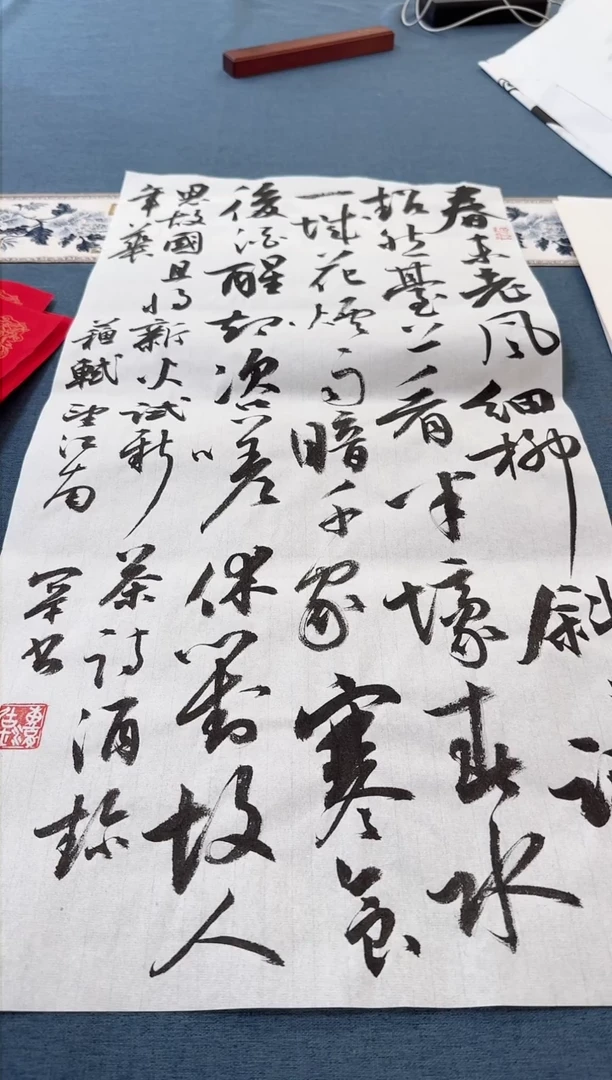 春未老風細柳斜
超然臺上看半壕春水
一城花煙雨暗千家寒食
後酒醒卻咨嗟休對故人
思故國且將新火試新茶詩酒趁
年華 蘇軾望江南 書